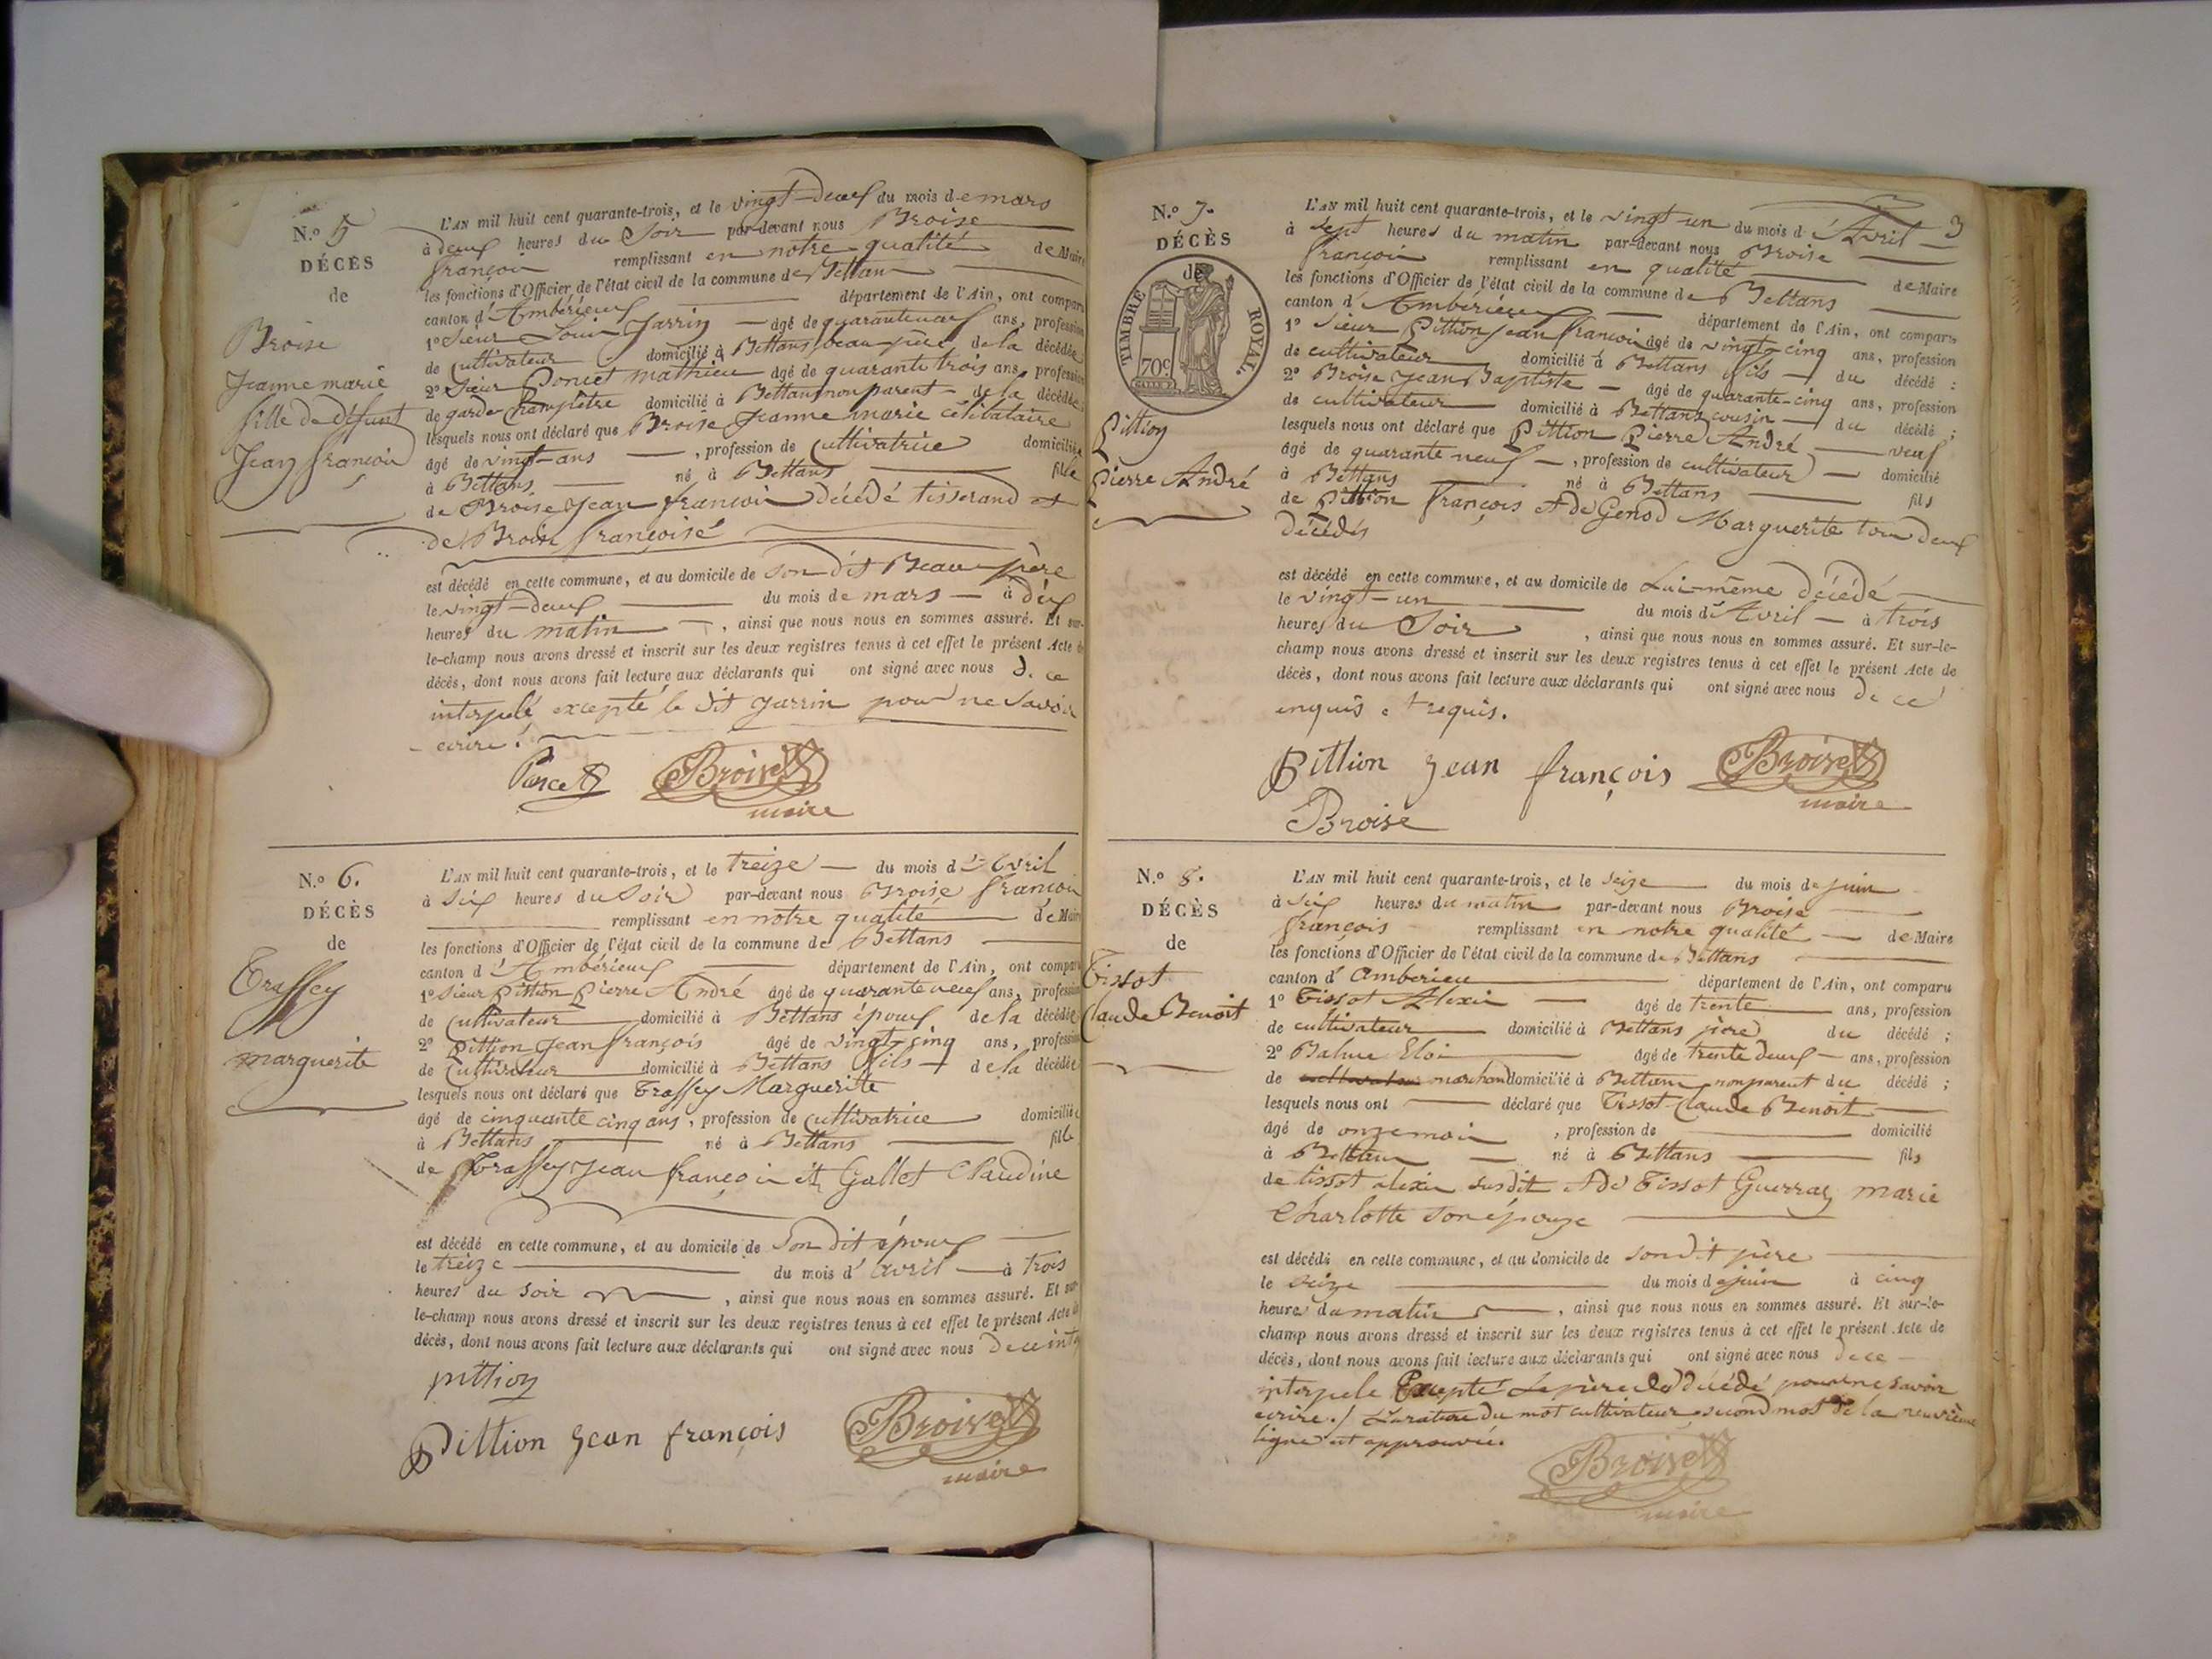 N.º 5
DÉCÈS
de
Broise
Jeanne marie
fille de défunt
Jean françois
L'AN mil huit cent quarante-trois, et le vingt-deux du mois de mars
à deux heures du Soir par-devant nous Broise
françois remplissant en notre qualité de Maire
les fonctions d'Officier de l'état civil de la commune de Bettans
canton d'Ambérieux département de l'Ain, ont comparu
1º Sieur Louis Jarrin âgé de quaranteneuf ans, profession
de Cultivateur domicilié à Bettans beau-père de la décédée
2º Sieur Poncet mathieu âgé de quarante trois ans, profession
de garde Champêtre domicilié à Bettans non parent de la décédée
lesquels nous ont déclaré que Broise Jeanne marie célibataire
âgé de vingt-ans, profession de Cultivatrice domiciliée
à Bettans né à Bettans fille
de Broise Jean françois décédé tisserand et
de Broise françoise
est décédé en cette commune, et au domicile de son dit Beau-père
le vingt-deux du mois de mars à dix
heures du matin, ainsi que nous nous en sommes assuré. Et sur-
le-champ nous avons dressé et inscrit sur les deux registres tenus à cet effet le présent Acte de
décès, dont nous avons fait lecture aux déclarants qui ont signé avec nous d. ce
interpelé, excepté le dit Jarrin pour ne Savoir
ecrire.
Poncet Broise
maire
N.º 6.
DÉCÈS
de
Traffey
marguerite
L'AN mil huit cent quarante-trois, et le treize du mois d'Avril
à Six heures du Soir par-devant nous Broise françois
remplissant en notre qualité de Maire
les fonctions d'Officier de l'état civil de la commune de Bettans
canton d'Ambérieux département de l'Ain, ont comparu
1º Sieur Pittion Pierre André âgé de quaranteneuf ans, profession
de Cultivateur domicilié à Bettans époux de la décédée
2º Pittion Jean françois âgé de vingt-cinq ans, profession
de Cultivateur domicilié à Bettans fils de la décédée
lesquels nous ont déclaré que Traffey Marguerite
âgé de cinquante cinq ans, profession de Cultivatrice domiciliée
à Bettans né à Bettans fille
de Traffey Jean françois et Gallet Claudine
est décédé en cette commune, et au domicile de Son dit époux
le treize du mois d'avril à trois
heures du soir, ainsi que nous nous en sommes assuré. Et sur-
le-champ nous avons dressé et inscrit sur les deux registres tenus à cet effet le présent Acte de
décès, dont nous avons fait lecture aux déclarants qui ont signé avec nous de ce
pittion
Pittion Jean françois Broise
maire
3
N.º 7.
DÉCÈS
de
TIMBRE ROYAL.
70c
Pittion
Pierre André
L'AN mil huit cent quarante-trois, et le vingt-un du mois d'Avril
à Sept heures du matin par-devant nous Broise
françois remplissant en qualité de Maire
les fonctions d'Officier de l'état civil de la commune de Bettans
canton d'Ambérieux département de l'Ain, ont comparu
1º Sieur Pittion Jean françois âgé de vingt-cinq ans, profession
de cultivateur domicilié à Bettans fils du décédé ;
2º Broise Jean Baptiste âgé de quarante-cinq ans, profession
de cultivateur domicilié à Bettans cousin du décédé ;
lesquels nous ont déclaré que Pittion Pierre André veuf
âgé de quarante neuf, profession de cultivateur domicilié
à Bettans né à Bettans fils
de Pittion françois et de Genod Marguerite tous deux
décédés
est décédé en cette commune, et au domicile de Lui-même décédé
le vingt-un du mois d'Avril à trois
heures du Soir, ainsi que nous nous en sommes assuré. Et sur-le-
champ nous avons dressé et inscrit sur les deux registres tenus à cet effet le présent Acte de
décès, dont nous avons fait lecture aux déclarants qui ont signé avec nous de ce
enquis et requis.
Pittion Jean françois Broise
maire
Broise
N.º 8.
DÉCÈS
de
Tissot
Claude Benoit
L'AN mil huit cent quarante-trois, et le seize du mois de juin
à six heures du matin par-devant nous Broise
françois remplissant en notre qualité de Maire
les fonctions d'Officier de l'état civil de la commune de Bettans
canton d'Amberieu département de l'Ain, ont comparu
1º Tissot Alexis âgé de trente ans, profession
de cultivateur domicilié à Bettans père du décédé ;
2º Balme Eloi âgé de trente deux ans, profession
de cultivateur marchand domicilié à Bettans non parent du décédé ;
lesquels nous ont déclaré que Tissot Claude Benoit
âgé de onze mois, profession de domicilié
à Bettans né à Bettans fils
de tissot alexis susdit et de Tissot Guerraz marie
Charlotte son épouse
est décédé en cette commune, et au domicile de son dit père
le seize du mois de juin à cinq
heures du matin, ainsi que nous nous en sommes assuré. Et sur-le-
champ nous avons dressé et inscrit sur les deux registres tenus à cet effet le présent Acte de
décès, dont nous avons fait lecture aux déclarants qui ont signé avec nous de ce
interpele Excepté Le père du décédé pour ne savoir
ecrire./ La rature du mot cultivateur second mot de la neuvième
ligne est approuvée.
Broise
maire